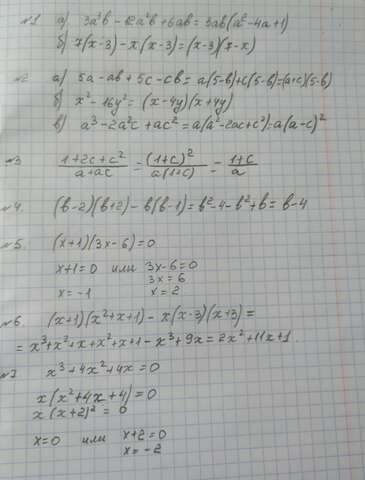 №1 а) 3a³b - 12a²b + 6ab = 3ab(a² - 4a + 1)
б) 7(x-3) - x(x-3) = (x-3)(7-x)
№2 а) 5a - ab + 5c - cb = a(5-b) + c(5-b) = (a+c)(5-b)
б) x² - 16y² = (x-4y)(x+4y)
в) a³ - 2a²c + ac² = a(a² - 2ac + c²) = a(a-c)²
№3 (1+2c+c²)/(a+ac) = (1+c)²/(a(1+c)) = (1+c)/a
№4. (b-2)(b+2) - b(b-1) = b² - 4 - b² + b = b - 4
№5. (x+1)(3x-6) = 0
x+1=0 или 3x-6=0
3x=6
x=-1 x=2
№6. (x+1)(x²+x+1) - x(x-3)(x+3) =
= x³+x²+x+x²+x+1 - x³+9x = 2x²+11x+1.
№7 x³+4x²+4x=0
x(x²+4x+4)=0
x(x+2)²=0
x=0 или x+2=0
x=-2